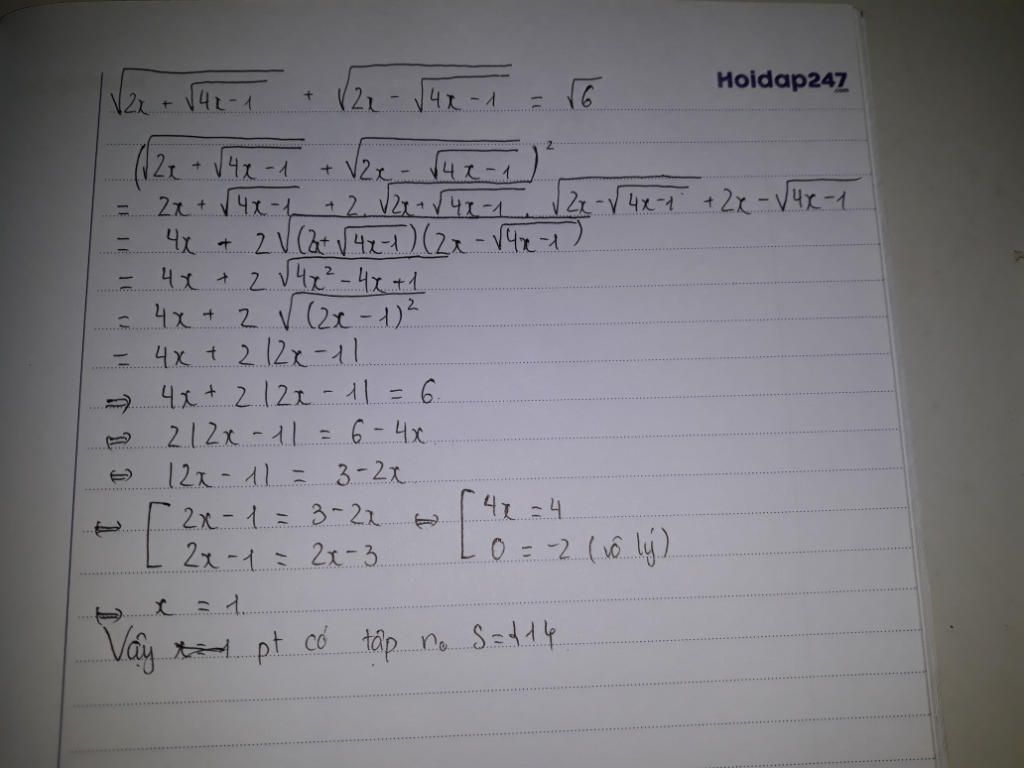 √(2x + √(4x-1)) + √(2x - √(4x-1)) = √6
Hoidap247
(√(2x + √(4x-1)) + √(2x - √(4x-1)))²
= 2x + √(4x-1) + 2. √(2x + √(4x-1)) . √(2x - √(4x-1)) + 2x - √(4x-1)
= 4x + 2 √((2x + √(4x-1))(2x - √(4x-1)))
= 4x + 2 √(4x² - 4x + 1)
= 4x + 2 √((2x - 1)²)
= 4x + 2 |2x - 1|
⇒ 4x + 2 |2x - 1| = 6
⇔ 2|2x - 1| = 6 - 4x
⇔ |2x - 1| = 3 - 2x
⇔ [ 2x - 1 = 3 - 2x ⇔ [ 4x = 4
2x - 1 = 2x - 3 0 = -2 (vô lý)
⇔ x = 1.
Vậy x=1 pt có tập no S={1}